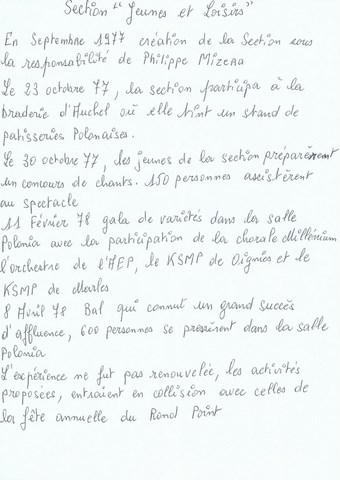 Section "Jeunes et Loisirs"
En Septembre 1977 création de la Section sous
la responsabilité de Philippe Mizera
Le 23 octobre 77, la section participa à la
braderie d'Auchel où elle tint un stand de
patisseries Polonaises.
Le 30 octobre 77, les jeunes de la section préparèrent
un concours de chants. 150 personnes assistèrent
au spectacle
11 Février 78 gala de variétés dans la salle
Polonia avec la participation de la chorale Millénium
l'orchestre de l'AEP, le KSMP de Oignies et le
KSMP de Marles
8 Avril 78 Bal qui connut un grand succès
d'affluence, 600 personnes se pressèrent dans la salle
Polonia
L'expérience ne fut pas renouvelée, les activités
proposées, entraient en collision avec celles de
la fête annuelle du Rond Point